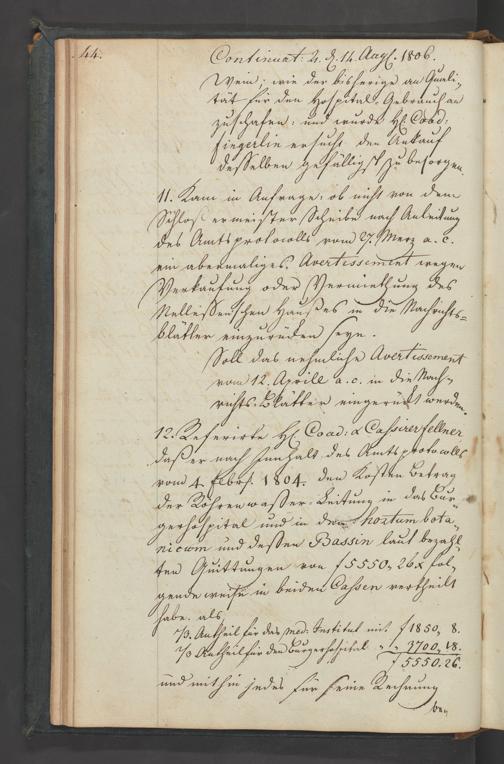 44.
Continuat: 4. d. 14. Aug. 1806.
Wein: wie der bisherige an Quali-
tät für den Hospital-Gebrauch an
zuschafen: und wurde H: Coad:
Fingerlin ersucht den Ankauf
desselben gefälligst zu besorgen.
11. Kam in Anfrage: ob nicht von dem
Schlossermeister Scheibe nach Anleitung
des Amtsprotocolls vom 27. Merz a. c.
ein abermaliges Avertissement wegen
Verkaufung oder Vermiethung des
Nelleßenschen Haußes in die Nachrichts-
blätter einzurüken seye.
Soll das nehmliche Avertissement
vom 12. Aprile a. c. in die Nach-
richts-Blätter eingerückt werden.
12. Referirte H: Coad: & Cassirer Fellner
daß er nach Innhalt des Amtsprotocolls
vom 4. Febr: 1804. den Kosten Betrag
der Röhrenwasser-Leitung in das Bur-
gerhospital und in den hortum bota-
nicum und dessen Bassin laut bezahl-
ten Quittungen von f 5550, 26 x fol-
gende weise in beiden Cassen vertheilt
habe. als
1/3. Antheil für das Med: Institut mit f 1850, 8.
2/3 Antheil für den Burgerhospital " " 3700, 18.
f 5550. 26.
und mithin jedes für seine Rechnung
be-